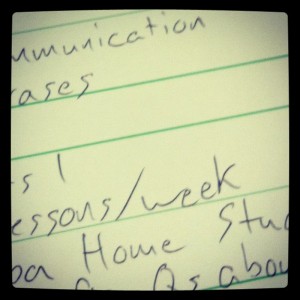 mmunication
ases
s 1
essons/week
Home Stu
Qs abou